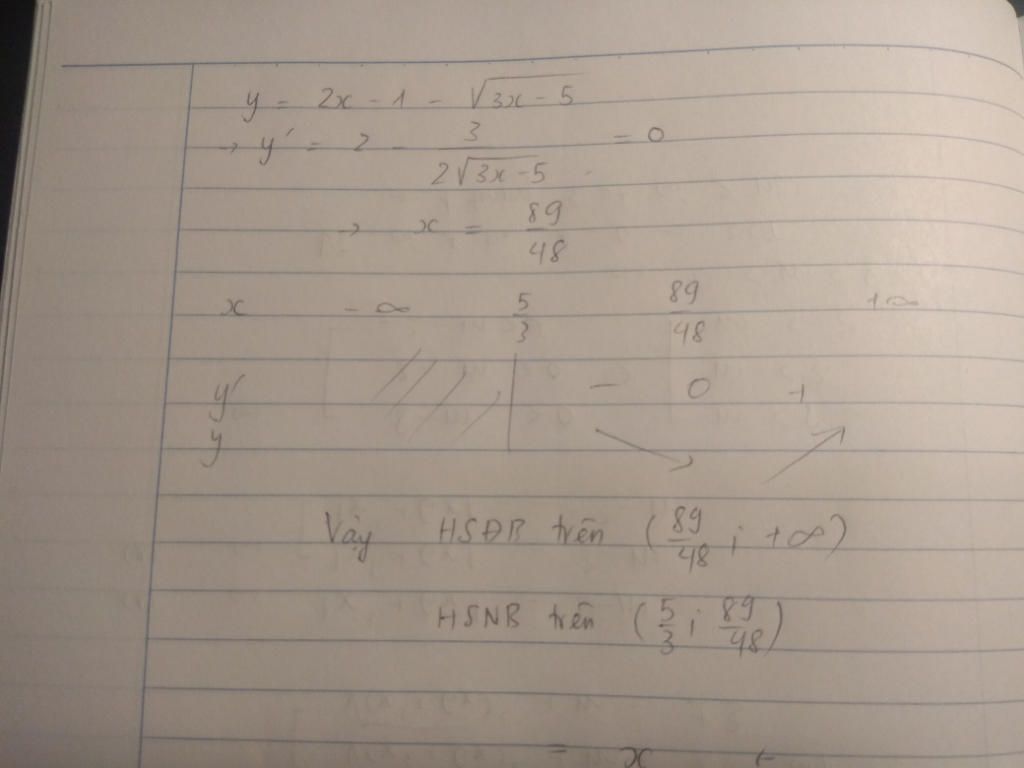 y = 2x - 1 - √(3x - 5)
→ y' = 2 - 3/(2√(3x - 5)) = 0
→ x = 89/48
x -∞ 5/3 89/48 +∞
y' - 0 +
y
Vậy HSĐB trên (89/48 ; +∞)
HSNB trên (5/3 ; 89/48)
= x